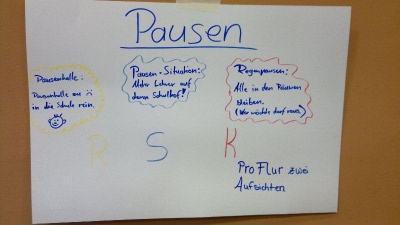 Pausen
Pausenhalle:
Pausenhalle zu
in die Schule rein.
Pausen-Situation:
Mehr Lehrer auf
dem Schulhof!
Regenpausen:
Alle in den Räumen
bleiben.
(Wer möchte darf raus.)
R S K
Pro Flur zwei
Aufsichten